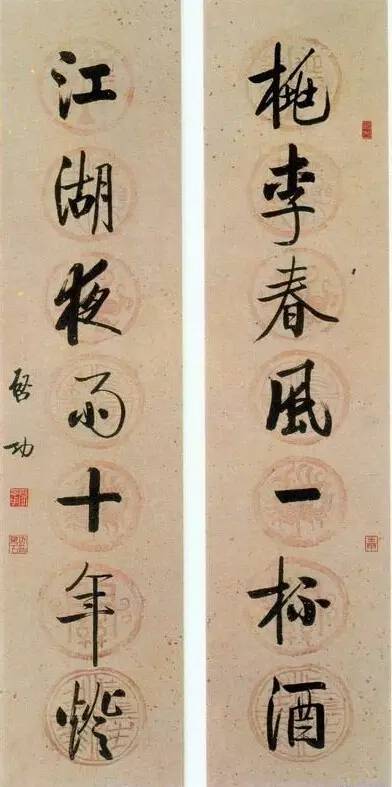 桃李春風一杯酒
江湖夜雨十年燈
啓功